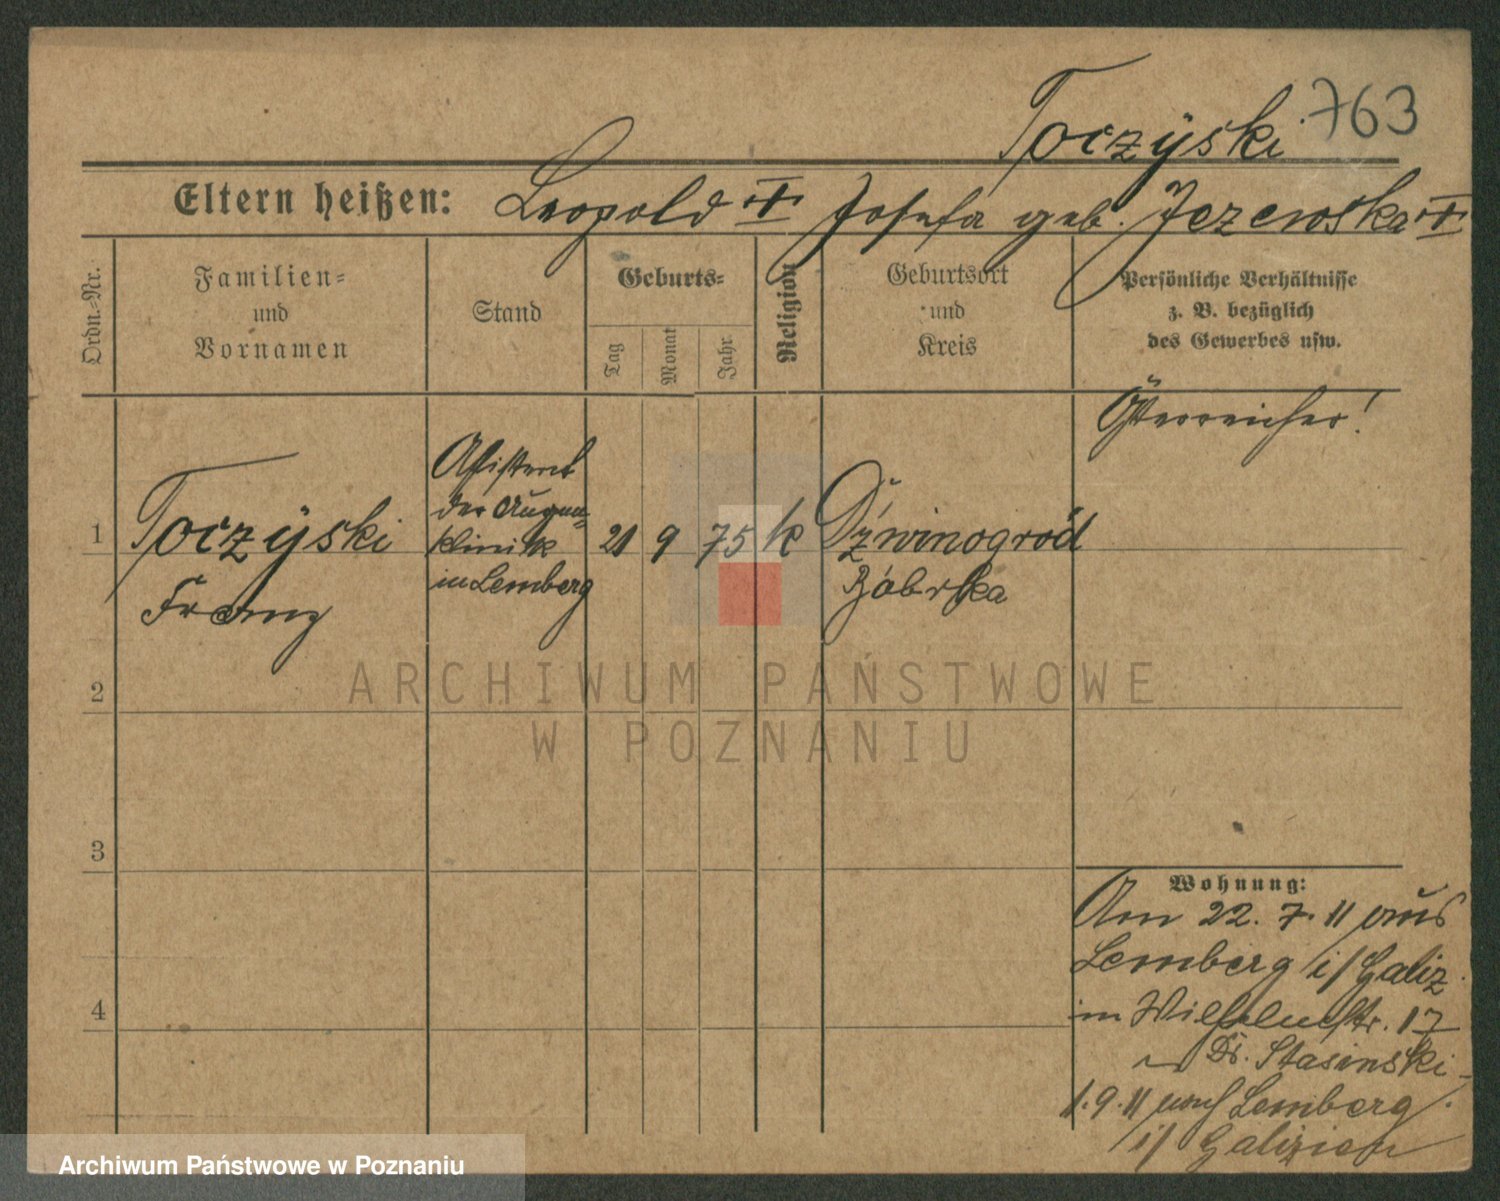 Toczÿski 763
Eltern heißen: Leopold ✝ Josefa geb. Jezewska ✝
Ordn.-Nr.
Familien-
und
Vornamen
Stand
Geburts-
Tag
Monat
Jahr
Religion
Geburtsort
und
Kreis
Persönliche Verhältnisse
z. B. bezüglich
des Gewerbes usw.
Österreicher!
1
Toczÿski
Franz
Assistent
der Augen-
klinik
in Lemberg
21 9 75 k
Dźwinogród
Bóbrka
2
3
4
ARCHIWUM PAŃSTWOWE
W POZNANIU
Wohnung:
Am 22. 7. 11 aus
Lemberg i/ Galiz.
in Wilhelmstr. 17
Dr. Stasinski
1.9.11 nach Lemberg
i/ Galizien
Archiwum Państwowe w Poznaniu